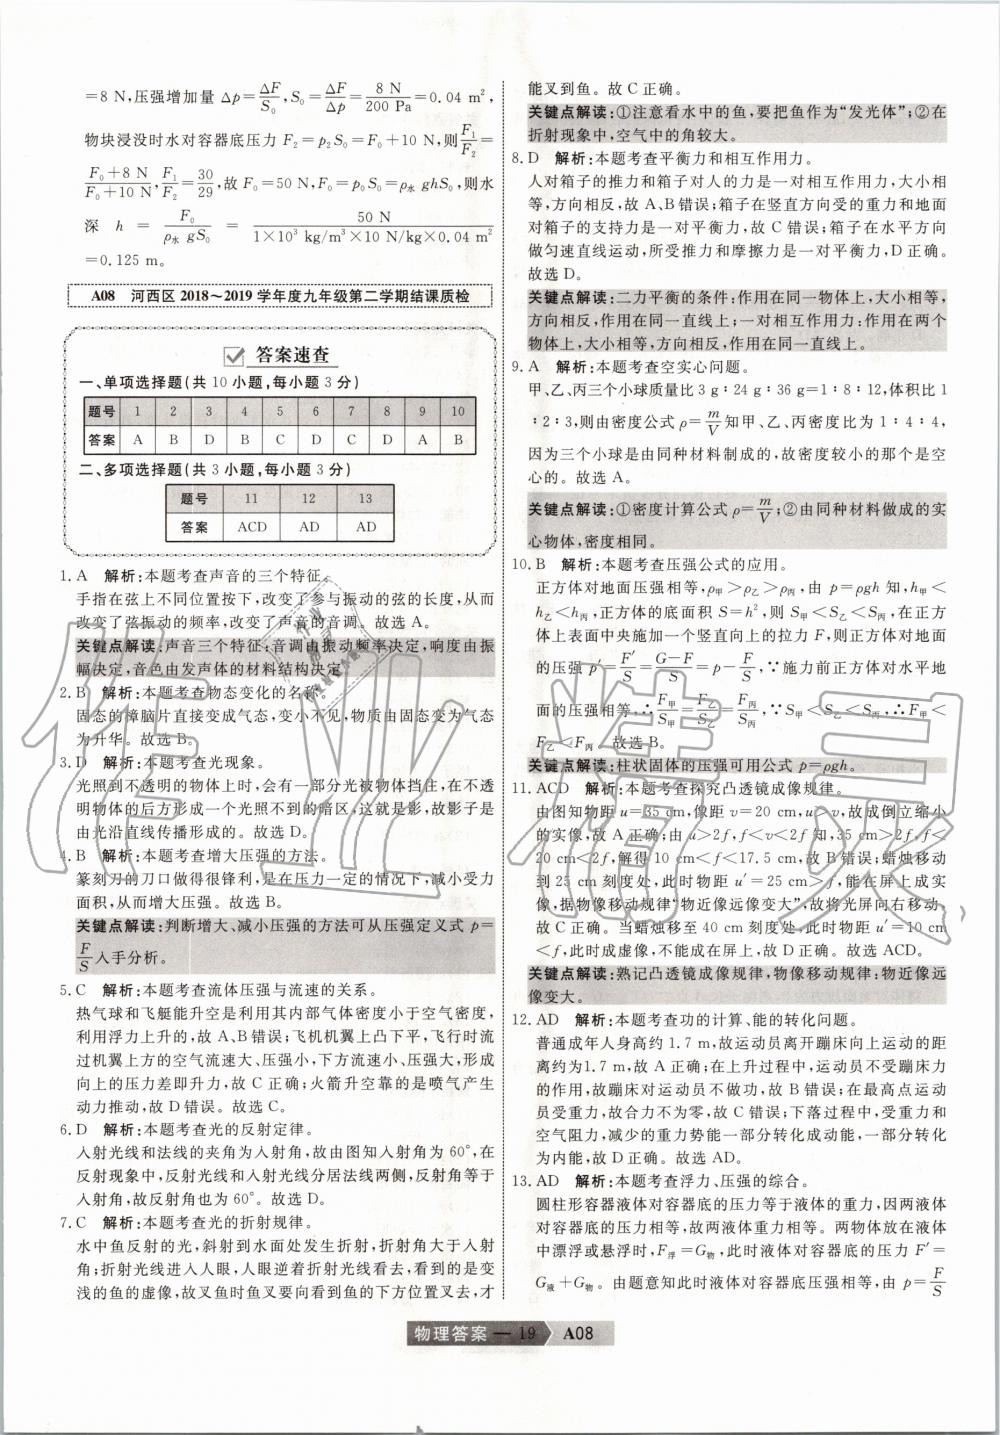 =8 N,压强增加量 Δp=ΔF/S₀,S₀=ΔF/Δp=8 N/200 Pa=0.04 m²,
物块浸没时水对容器底压力 F₂=p₂S₀=F₀+10 N,则F₁/F₂=
F₀+8 N/F₀+10 N,F₁/F₂=30/29,故 F₀=50 N,F₀=p₀S₀=ρ水 ghS₀,则水
深 h = F₀/ρ水 gS₀ = 50 N/1×10³ kg/m³×10 N/kg×0.04 m²
=0.125 m。
A08 河西区 2018~2019 学年度九年级第二学期结课质检
答案速查
一、单项选择题(共 10 小题,每小题 3 分)
题号 1 2 3 4 5 6 7 8 9 10
答案 A B D B C D C D A B
二、多项选择题(共 3 小题,每小题 3 分)
题号 11 12 13
答案 ACD AD AD
1. A 解析:本题考查声音的三个特征。
手指在弦上不同位置按下,改变了参与振动的弦的长度,从而
改变了弦振动的频率,改变了声音的音调。故选 A。
关键点解读:声音三个特征:音调由振动频率决定,响度由振
幅决定,音色由发声体的材料结构决定。
2. B 解析:本题考查物态变化的名称。
固态的樟脑片直接变成气态,变小不见,物质由固态变为气态
为升华。故选 B。
3. D 解析:本题考查光现象。
光照到不透明的物体上时,会有一部分光被物体挡住,在不透
明物体的后方形成一个光照不到的暗区,这就是影,故影子是
由光沿直线传播形成的。故选 D。
4. B 解析:本题考查增大压强的方法。
篆刻刀的刀口做得很锋利,是在压力一定的情况下,减小受力
面积,从而增大压强。故选 B。
关键点解读:判断增大、减小压强的方法可从压强定义式 p=
F/S入手分析。
5. C 解析:本题考查流体压强与流速的关系。
热气球和飞艇能升空是利用其内部气体密度小于空气密度,
利用浮力上升的,故 A、B 错误;飞机机翼上凸下平,飞行时流
过机翼上方的空气流速大、压强小,下方流速小、压强大,形成
向上的压力差即升力,故 C 正确;火箭升空靠的是喷气产生
动力推动,故 D 错误。故选 C。
6. D 解析:本题考查光的反射定律。
入射光线和法线的夹角为入射角,故由图知入射角为 60°,在
反射现象中,反射光线和入射光线分居法线两侧,反射角等于
入射角,故反射角也为 60°。故选 D。
7. C 解析:本题考查光的折射规律。
水中鱼反射的光,斜射到水面处发生折射,折射角大于入射
角;折射光线进入人眼,人眼逆着折射光线看去,看到的是变
浅的鱼的虚像,故叉鱼时鱼叉要向看到鱼的下方位置叉去,才
能叉到鱼。故 C 正确。
关键点解读:①注意看水中的鱼,要把鱼作为“发光体”;②在
折射现象中,空气中的角较大。
8. D 解析:本题考查平衡力和相互作用力。
人对箱子的推力和箱子对人的力是一对相互作用力,大小相
等,方向相反,故 A、B 错误;箱子在竖直方向受的重力和地面
对箱子的支持力是一对平衡力,故 C 错误;箱子在水平方向
做匀速直线运动,所受推力和摩擦力是一对平衡力,D 正确。
故选 D。
关键点解读:二力平衡的条件:作用在同一物体上,大小相等,
方向相反,作用在同一直线上;一对相互作用力:作用在两个
物体上,大小相等,方向相反,作用在同一直线上。
9. A 解析:本题考查空实心问题。
甲、乙、丙三个小球质量比 3 g∶24 g∶36 g=1∶8∶12,体积比 1
∶2∶3,则由密度公式 ρ=m/V知甲、乙、丙密度比为 1∶4∶4,
因为三个小球是由同种材料制成的,故密度较小的那个是空
心的。故选 A。
关键点解读:①密度计算公式 ρ=m/V;②由同种材料做成的实
心物体,密度相同。
10. B 解析:本题考查压强公式的应用。
正方体对地面压强相等,ρ甲>ρ乙>ρ丙,由 p=ρgh 知,h甲<
h乙<h丙,正方体的底面积 S=h²,则 S甲<S乙<S丙,在正方
体上表面中央施加一个竖直向上的拉力 F,则正方体对地面
的压强 p′=F′/S=G−F/S=p−F/S,∵施力前正方体对水平地
面的压强相等,∴F甲/S甲=F乙/S乙=F丙/S丙,∵S甲<S乙<S丙,∴F甲<
F乙<F丙。故选 B。
关键点解读:柱状固体的压强可用公式 p=ρgh。
11. ACD 解析:本题考查探究凸透镜成像规律。
由图知物距 u=35 cm,像距 v=20 cm,u>v,故成倒立缩小
的实像,故 A 正确;由 u>2f,f<v<2f 知,35 cm>2f,f<
20 cm<2f,解得 10 cm<f<17.5 cm,故 B 错误;蜡烛移动
到 25 cm 刻度处,此时物距 u′=25 cm>f,能在屏上成实
像,据物像移动规律“物近像远像变大”,故将光屏向右移动,
故 C 正确。当蜡烛移至 40 cm 刻度处,此时物距 u′=10 cm
<f,此时成虚像,不能成在屏上,故 D 正确。故选 ACD。
关键点解读:熟记凸透镜成像规律,物像移动规律:物近像远
像变大。
12. AD 解析:本题考查功的计算、能的转化问题。
普通成年人身高约 1.7 m,故运动员离开蹦床向上运动的距
离约为1.7 m,故 A 正确;在上升过程中,运动员不受蹦床力
的作用,故蹦床对运动员不做功,故 B 错误;在最高点运动
员受重力,故合力不为零,故 C 错误;下落过程中,受重力和
空气阻力,减少的重力势能一部分转化成动能,一部分转化
为内能,故 D 正确。故选 AD。
13. AD 解析:本题考查浮力、压强的综合。
圆柱形容器液体对容器底的压力等于液体的重力,因两液体
对容器底的压力相等,故两液体重力相等。两物体放在液体
中漂浮或悬浮时,F浮=G物,此时液体对容器底的压力 F′=
G液+G物。由题意知此时液体对容器底压强相等,由 p=F/S
物理答案 — 19 A08
作业精灵